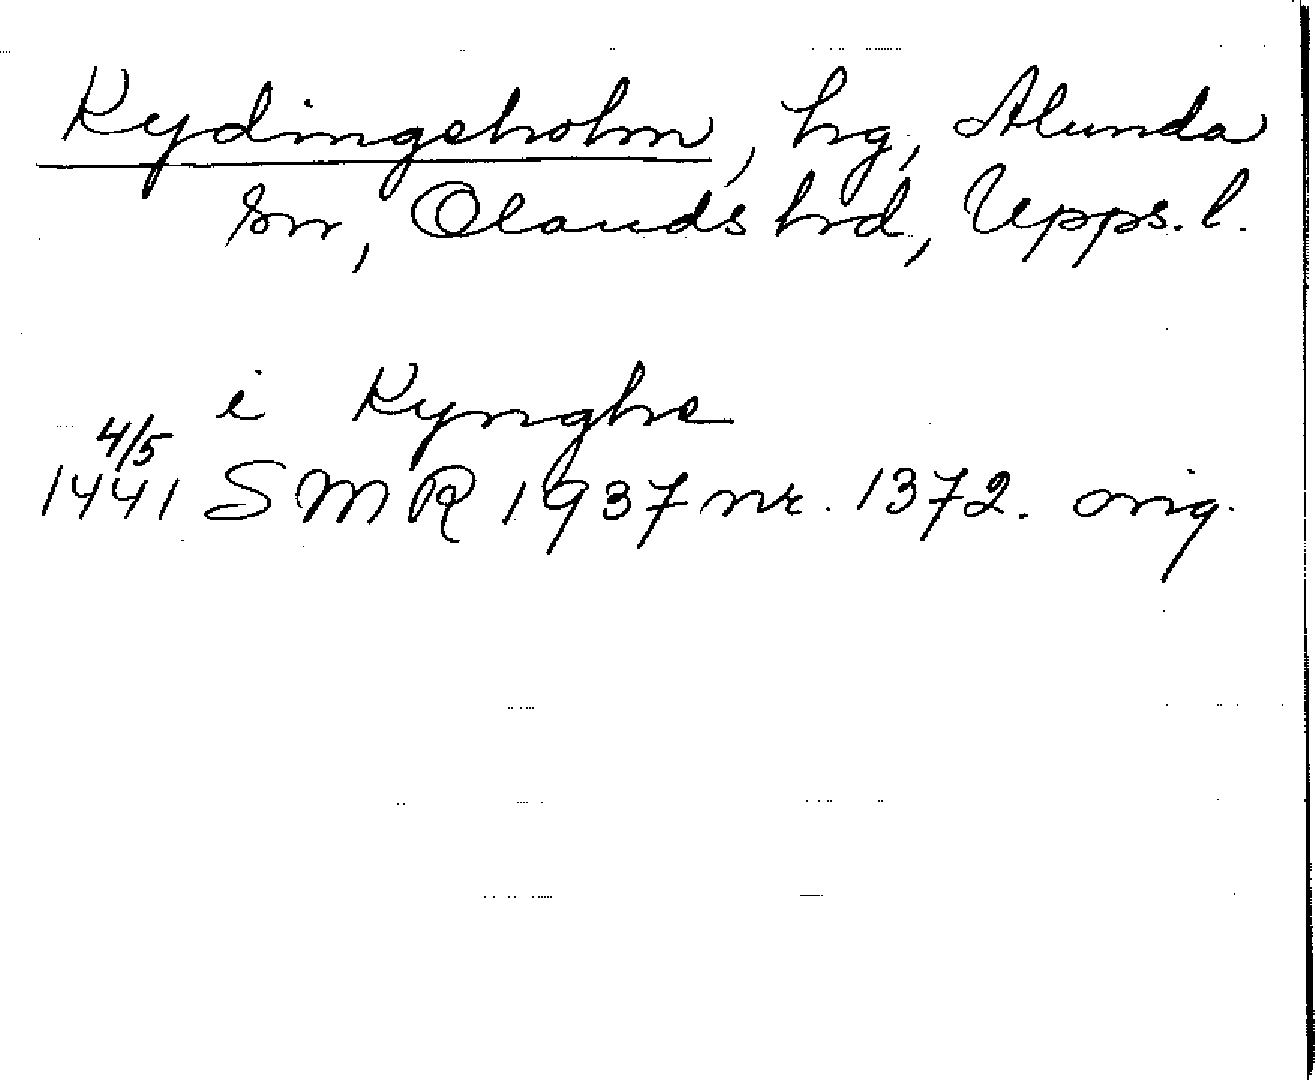 Rydingsholm, hg, Alunda
sn, Olands hrd, Upps. l.
i Rynghe
4/5
1441 SMR 1937 nr. 1372. orig.